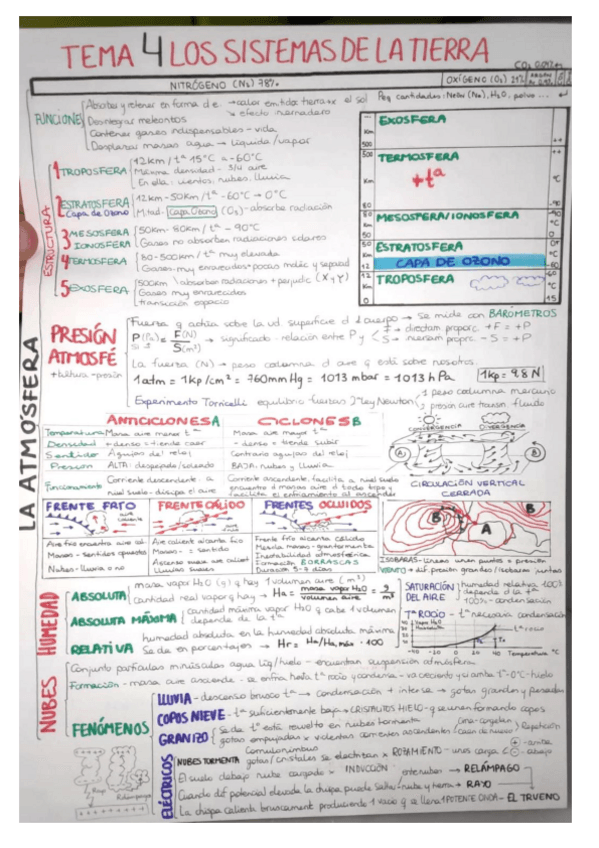 TEMA 4 LOS SISTEMAS DE LA TIERRA
CO₂ 0.03%
NITRÓGENO (N₂) 78%
OXÍGENO (O₂) 21%
LA ATMÓSFERA
FUNCIONES
Absorber y retener en forma d e. → calor emitida tierra x el sol
↳ efecto invernadero
Desintegrar meteoritos
Contener gases indispensables - vida
Desplazar masas agua → líquida/vapor
Peq cantidades: Neón (Ne), H₂O, polvo ...
ESTRUCTURA
1 TROPOSFERA
12km / tª 15°C a -60°C
Máxima densidad - 3/4 aire
En ella: vientos, nubes, lluvia
2 ESTRATOSFERA
Capa de Ozono
12km - 50km / tª -60°C → 0°C
Mitad - Capa Ozono (O₃) - absorbe radiación
3 MESOSFERA
IONOSFERA
50km - 80km / tª - 90°C
Gases no absorben radiaciones solares
4 TERMOSFERA
80-500km / tª muy elevada
Gases muy enrarecidos = pocas moléc y separad
5 EXOSFERA
500km \ absorben radiaciones + perjudic (X y γ)
Gases muy enrarecidos
transición espacio
EXOSFERA
Km
500
500
TERMOSFERA
+tª
Km
°C
80
-90
80
MESOSFERA/IONOSFERA
-90
Km
°C
50
0
50
ESTRATOSFERA
0º
°C
CAPA DE OZONO
12
-60
12
TROPOSFERA
-60
Km
°C
0
15
PRESIÓN ATMOSFÉ
+ altura - presión
Fuerza q actúa sobre la ud. superficie d 1 cuerpo → Se mide con BARÓMETROS
P(Pa) = F(N) / S(m²) → significado - relación entre P y
F → directam proporc. +F = +P
S → inversam proporc - S = +P
La fuerza (N) → peso columna d aire q está sobre nosotros.
1atm = 1kp/cm² = 760mm Hg = 1013 mbar = 1013 hPa
1kp = 9'8 N
Experimento Torricelli equilibrio fuerzas 3ªley Newton
1 peso columna mercurio
2 presión aire transm. fluido
ANTICICLONES A
CICLONES B
Temperatura
Masa aire menor tª
Masa aire mayor tª
Densidad
+ denso = tiende caer
- denso = tiende subir
Sentido
Agujas del reloj
Contrario agujas del reloj
Presión
ALTA: despejado/soleado
BAJA: nubes y lluvia
Funcionamiento
Corriente descendente a nivel suelo - disipa el aire
Corriente ascendente, facilita a nivel suelo
facilita el enfriamiento al ascender
CONVERGENCIA
DIVERGENCIA
A
B
CIRCULACIÓN VERTICAL CERRADA
FRENTE FRÍO
FRENTE CÁLIDO
FRENTES OCLUIDOS
Aire frío encuentra aire cál
Masas - Sentidos opuestos
Nubes - lluvia o no
Aire caliente alcanza frío
Masas - = sentido
Ascenso suave aire calient
Lluvias suaves
Frente frío alcanza cálido
Mezcla masas - gran tormenta
Inestabilidad atmosférica
Formación BORRASCAS
Duración 5-7 días
B
A
B
ISOBARAS - Líneas unen puntos = presión
VIENTO + dif. presión grandes/isobaras juntas
HUMEDAD
ABSOLUTA
masa vapor H₂O (g) q hay 1 volumen aire (m³)
cantidad real vapor q hay → Ha = masa vapor H₂O / volumen aire = g/m³
ABSOLUTA MÁXIMA
cantidad máxima vapor H₂O q cabe 1 volumen
depende de la tª
RELATIVA
humedad absoluta en la humedad absoluta máxima
Se da en porcentajes → Hr = Ha/Ha,máx · 100
SATURACIÓN DEL AIRE
humedad relativa 100%
depende d la tª
100% - condensación
Tª ROCÍO - tª necesaria condensación
Vapor H₂O
tª rocío
-40 -20 0 20 40 Temperatura °C
NUBES
Conjunto partículas minúsculas agua líq/hielo - encuentran suspensión atmósfera
Formación - masa aire asciende - se enfría hasta tª rocío y condensa - va creciente y si amba tª - 0°C - hielo
FENÓMENOS
LLUVIA - descenso brusco tª → condensación + intensa → gotas grandes y pesadas
COPOS NIEVE - tª suficientemente baja → CRISTALITOS HIELO - q se unen formando copos
GRANIZO
Se da tª está revuelto en nubes tormenta
gotas empujadas x violentas corrientes ascendentes
Cima - congelan
caen de nuevo
Repetición
ELÉCTRICOS
Cumulonimbus
NUBES TORMENTA gotas/cristales se electrizan x ROZAMIENTO - unas carga
+ - arriba
- - abajo
El suelo debajo nube cargado x INDUCCIÓN
entre nubes → RELÁMPAGO
Cuando dif. potencial elevada la chispa puede saltar
nube y tierra → RAYO
La chispa caliente bruscament produciendo 1 vacío q se llena 1 POTENTE ONDA - EL TRUENO
Rayo
Relámpago